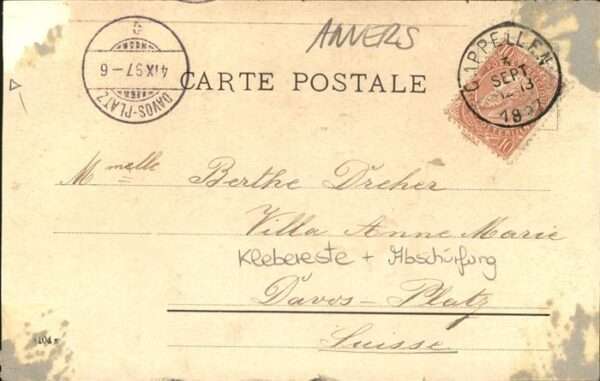 ANVERS
CARTE POSTALE
DAVOS-PLATZ
4 IX 97 - 6
CAPPELLEN
SEPT
1897
10 10
Mmelle Berthe Dreher
Villa Anne Marie
Klebereste + Abschürfung
Davos-Platz
Suisse